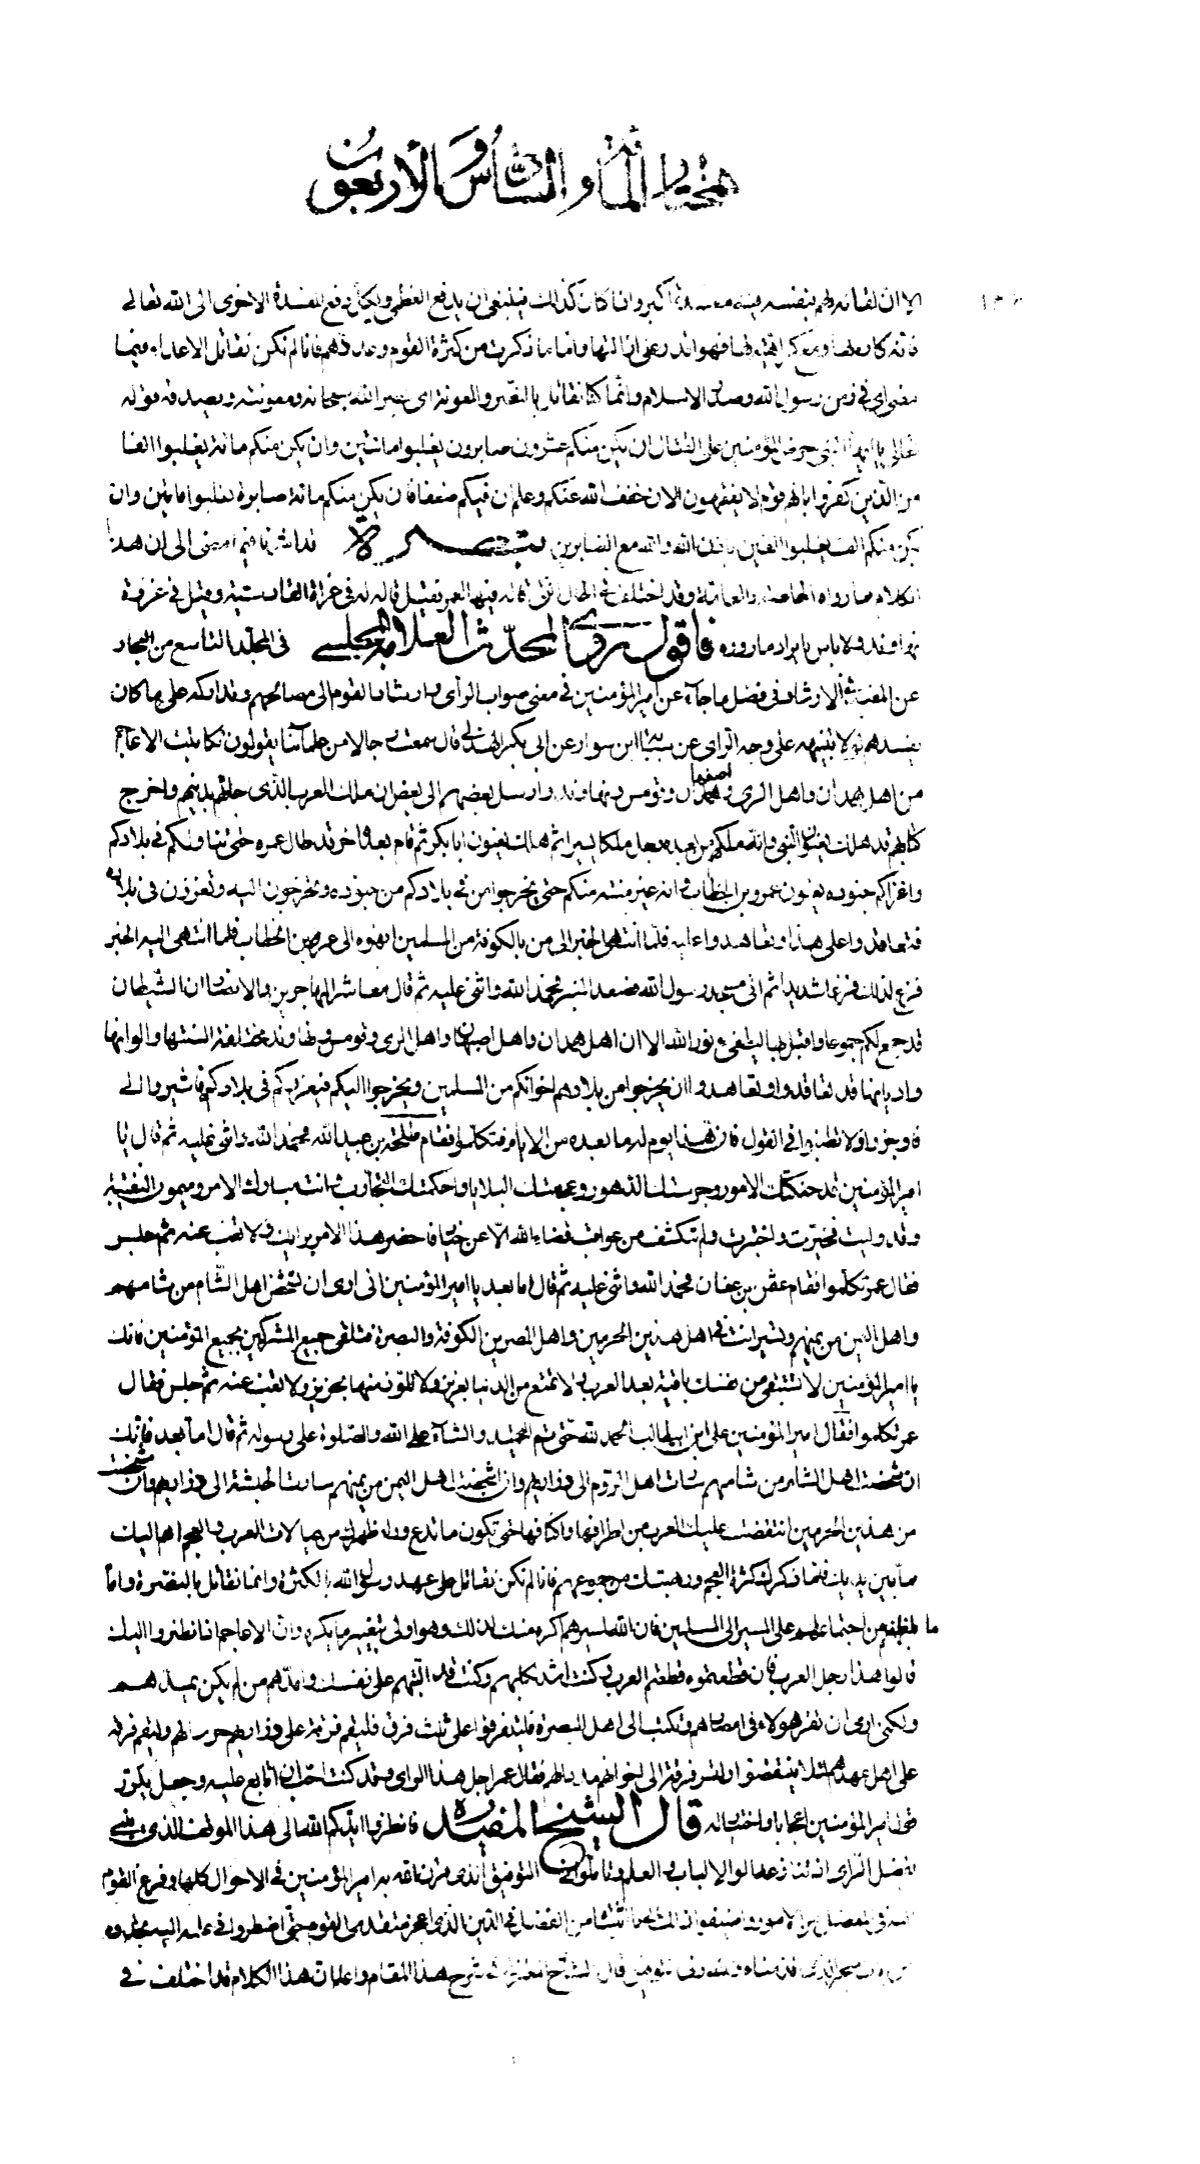 المختار المأة والسادس والأربعون
الا ان لقائه لهم بنفسه فيه مفسدة اكبر واذا كان كذلك فينبغي ان يدفع العظمى ويكل دفع المفسدة الاخرى الى الله تعالى
فانه كاره لها ومع كراهيته لها فهو اقدر على ازالتها واما ما ذكرت من كثرة القوم وعددهم فانا لم نكن نقاتل الاعداء فيما
مضى اي في زمن رسول الله وصدر الاسلام وانما كنا نقاتل بالنصر والمعونة اي بنصر الله سبحانه ومعونته ويصدقه قوله
تعالى يا ايها النبي حرض المؤمنين على القتال ان يكن منكم عشرون صابرون يغلبوا مائتين وان يكن منكم مائة يغلبوا الفا
من الذين كفروا بانهم قوم لا يفقهون الان خفف الله عنكم وعلم ان فيكم ضعفا فان يكن منكم مائة صابرة يغلبوا مائتين وان
يكن منكم الف يغلبوا الفين باذن الله والله مع الصابرين تبصرة قد اشرنا فيما مضى الى ان هذا
الكلام مما رواه الخاصة والعامة وقد اختلف في الحال التي قاله فيها لعمر فقيل قاله له في غزاة القادسية وقيل في غزوة
نهاوند ولا باس بايراد ما رووه فاقول روى المحدث العلامة المجلسي في المجلد التاسع من البحار
عن المفيد في الارشاد في فضل ما جاء عن امير المؤمنين في معنى صواب الرأي وارشاد القوم الى مصالحهم وتداركه على ما كان
يفسدهم لولا تنبيهه على وجه الرأي عن شبابة ابن سوار عن ابي بكر الهذلي قال سمعت رجالا من علمائنا يقولون تكاتبت الاعاجم
من اهل همدان واهل الري واصفهان وقومس ونهاوند وارسل بعضهم الى بعض ان ملك العرب الذي جائهم بدينهم واخرج
كتابهم قد هلك يعنون النبي وانه ملكهم من بعده رجل ملكا يسيرا ثم هلك يعنون ابا بكر ثم قام بعده اخر قد طال عمره حتى تناولكم في بلادكم
واغزاكم جنوده يعنون عمر بن الخطاب وانه غير منته عنكم حتى تخرجوا من في بلادكم من جنوده وتخرجون اليه وتغزون في بلاده
فتعاقدوا على هذا وتعاهدوا عليه فلما انتهى الخبر الى من بالكوفة من المسلمين انهوه الى عمر بن الخطاب فلما انتهى اليه الخبر
فزع لذلك فزعا شديدا ثم اتى مسجد رسول الله فصعد المنبر فحمد الله واثنى عليه ثم قال معاشر المهاجرين والانصار ان الشيطان
قد جمع لكم جموعا واقبل بها ليطفئ نور الله الا ان اهل همدان واهل اصبهان واهل الري وقومس ونهاوند مختلفة السنتها والوانها
واديانها قد تعاقدوا وتعاهدوا ان يخرجوا من بلادهم اخوانكم من المسلمين ويخرجوا اليكم فيغزوكم في بلادكم فاشيروا الي
فاوجزوا ولا تطنبوا في القول فان هذا يوم له ما بعده من الايام فتكلموا فقام طلحة بن عبيد الله فحمد الله واثنى عليه ثم قال يا
امير المؤمنين قد حنكتك الامور وجرستك الدهور وعجمتك البلايا واحكمتك التجارب وانت مبارك الامر وميمون النقيبة
وقد وليت فخبرت واختبرت ولم تنكشف من عواقب قضاء الله الا عن خيار فاحضر هذا الامر برايك ولا تغب عنه ثم جلس
فقال عمر تكلموا فقام عثمن بن عفان فحمد الله واثنى عليه ثم قال اما بعد يا امير المؤمنين اني ارى ان تشخص اهل الشام من شامهم
واهل اليمن من يمنهم وتسير انت في اهل هذين الحرمين واهل المصرين الكوفة والبصرة فتلقى جميع المشركين بجميع المؤمنين فانك
يا امير المؤمنين لا تستبقي من نفسك باقية بعد العرب ولا تمتع من الدنيا بعزيز ولا تلوذ منها بحريز ولا تغب عنه ثم جلس فقال
عمر تكلموا فقال امير المؤمنين علي ابن ابيطالب الحمد لله حتى تم التحميد والثناء على الله والصلوة على رسوله ثم قال اما بعد فانك
ان شخصت اهل الشام من شامهم سارت اهل الروم الى ذراريهم وان اشخصت اهل اليمن من يمنهم سارت الحبشة الى ذراريهم وان شخصت
من هذين الحرمين انتقضت عليك العرب من اطرافها واكنافها حتى تكون ما تدع وراء ظهرك من عيالات العرب والعجم اهم اليك
مما بين يديك فاما ذكرك كثرة العجم ورهبتك من جموعهم فانا لم نكن نقاتل على عهد رسول الله بالكثرة وانما نقاتل بالنصرة واما
ما بلغك من اجتماعهم على المسير الى المسلمين فان الله لمسيرهم اكره منك لذلك وهو اولى بتغيير ما يكره وان الاعاجم اذا نظروا اليك
قالوا هذا رجل العرب فان قطعتموه قطعتم العرب وكنت اشد لكلبهم وكنت قد البتهم على نفسك وامدهم من لم يكن يمدهم
ولكني ارى ان تقر هؤلاء في امصارهم وتكتب الى اهل البصرة فليتفرقوا على ثلث فرق فليقم فرقة على ذراريهم حرسا لهم وليقم فرقة
على اهل عهدهم لئلا ينتقضوا ولتسر فرقة الى اخوانهم مددا لهم فقال عمر اجل هذا الراي وقد كنت احب ان اتابع عليه وجعل يكرر
قول امير المؤمنين اعجابا واختيارا له قال الشيخ المفيد ره فانظروا ايدكم الله الى هذا الموقف الذي ينبئ
بفضل الراي اذ تنازعه اولو الالباب والعلم وتاملوا في التوفيق الذي قرن الله به امير المؤمنين في الاحوال كلها وفزع القوم
اليه في المعضل من الامور واضيفوا ذلك الى ما اثبتناه من الفضل في الدين الذي اعجز متقدمي القوم حتى اضطروا في علمه اليه تجدوه
من باب المعجز الذي قدمناه قال الشارح المعتزلي في شرح هذا المقام واعلم ان هذا الكلام قد اختلف في